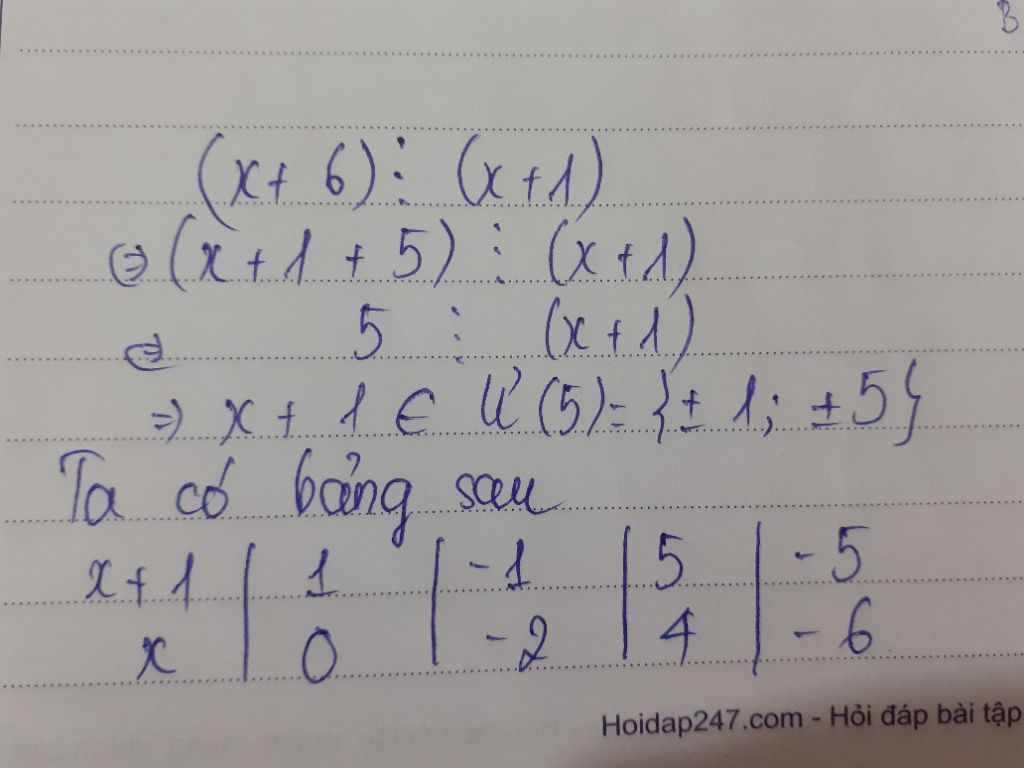 B
(x + 6) ⋮ (x + 1)
⇔ (x + 1 + 5) ⋮ (x + 1)
⇔ 5 ⋮ (x + 1)
⇒ x + 1 ∈ Ư (5) = {± 1; ± 5}
Ta có bảng sau
x + 1 | 1 | -1 | 5 | -5
x | 0 | -2 | 4 | -6
Hoidap247.com - Hỏi đáp bài tập